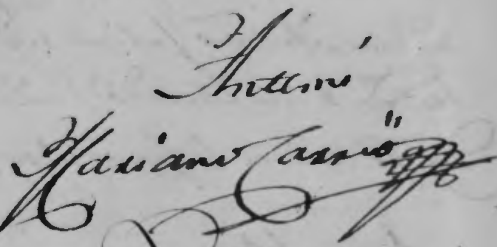 Anttemi
Mariano Carrió